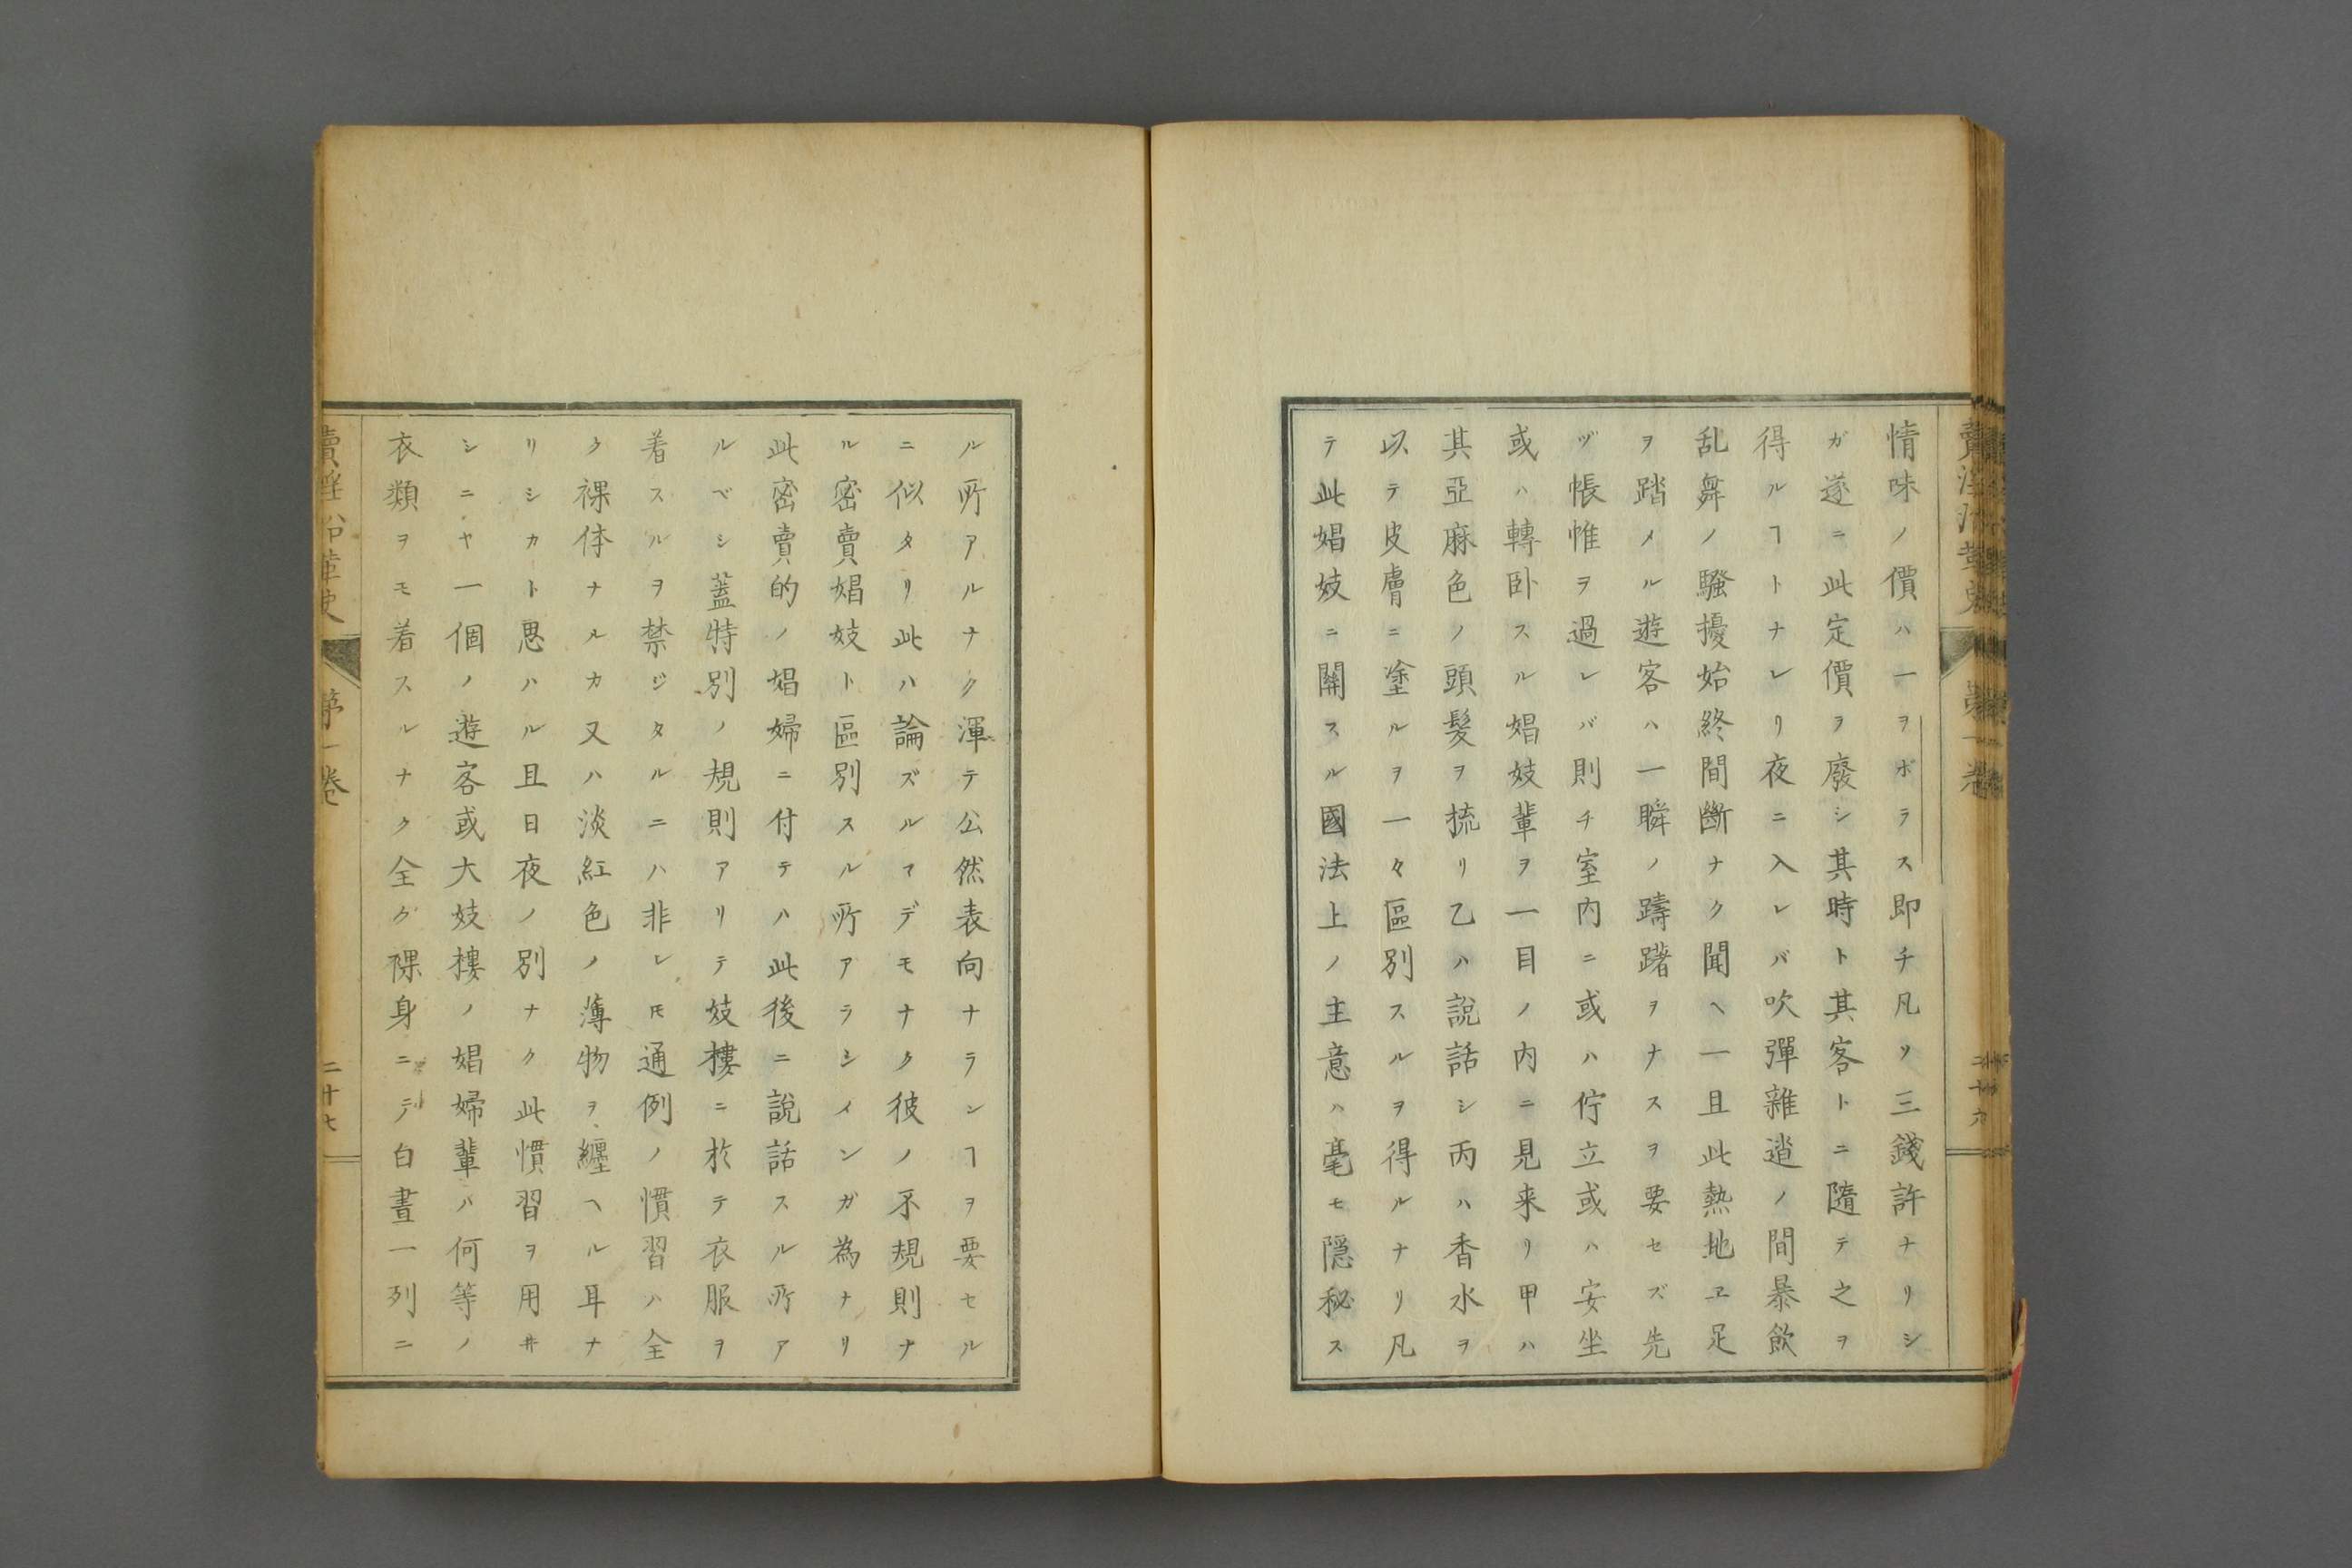 情味ノ價ハ一ヲボラス即チ凡ソ三錢許ナリシ
ガ遂ニ此定價ヲ廢シ其時ト其客トニ隨テ之ヲ
得ルヿトナレリ夜ニ入レバ吹彈雜遝ノ間暴飮
乱舞ノ騷擾始終間斷ナク聞ヘ一旦此熱地ヱ足
ヲ踏メル遊客ハ一瞬ノ躊躇ヲナスヲ要セズ先
ヅ帳帷ヲ過レバ則チ室内ニ或ハ佇立或ハ安坐
或ハ轉臥スル娼妓輩ヲ一目ノ内ニ見来リ甲ハ
其亞麻色ノ頭髮ヲ梳リ乙ハ説話シ丙ハ香水ヲ
以テ皮膚ニ塗ルヲ一々區別スルヲ得ルナリ凡
テ此娼妓ニ關スル國法上ノ主意ハ毫モ隠秘ス
ル所アルナク渾テ公然表向ナランヿヲ要セル
ニ似タリ此ハ論ズルマデモナク彼ノ不規則ナ
ル密賣娼妓ト區別スル所アラシメンガ為ナリ
此密賣的ノ娼婦ニ付テハ此後ニ説話スル所ア
ルベシ蓋特別ノ規則アリテ妓樓ニ於テ衣服ヲ
着スルヲ禁ジタルニハ非レ𪜈通例ノ慣習ハ全
ク裸体ナルカ又ハ淡紅色ノ薄物ヲ纏ヘル耳ナ
リシカト思ハル且日夜ノ別ナク此慣習ヲ用井
シニヤ一個ノ遊客或大妓樓ノ娼婦輩ハ何等ノ
衣類ヲモ着スルナク全ク裸身ニテ白晝一列ニ
第一卷
二十七